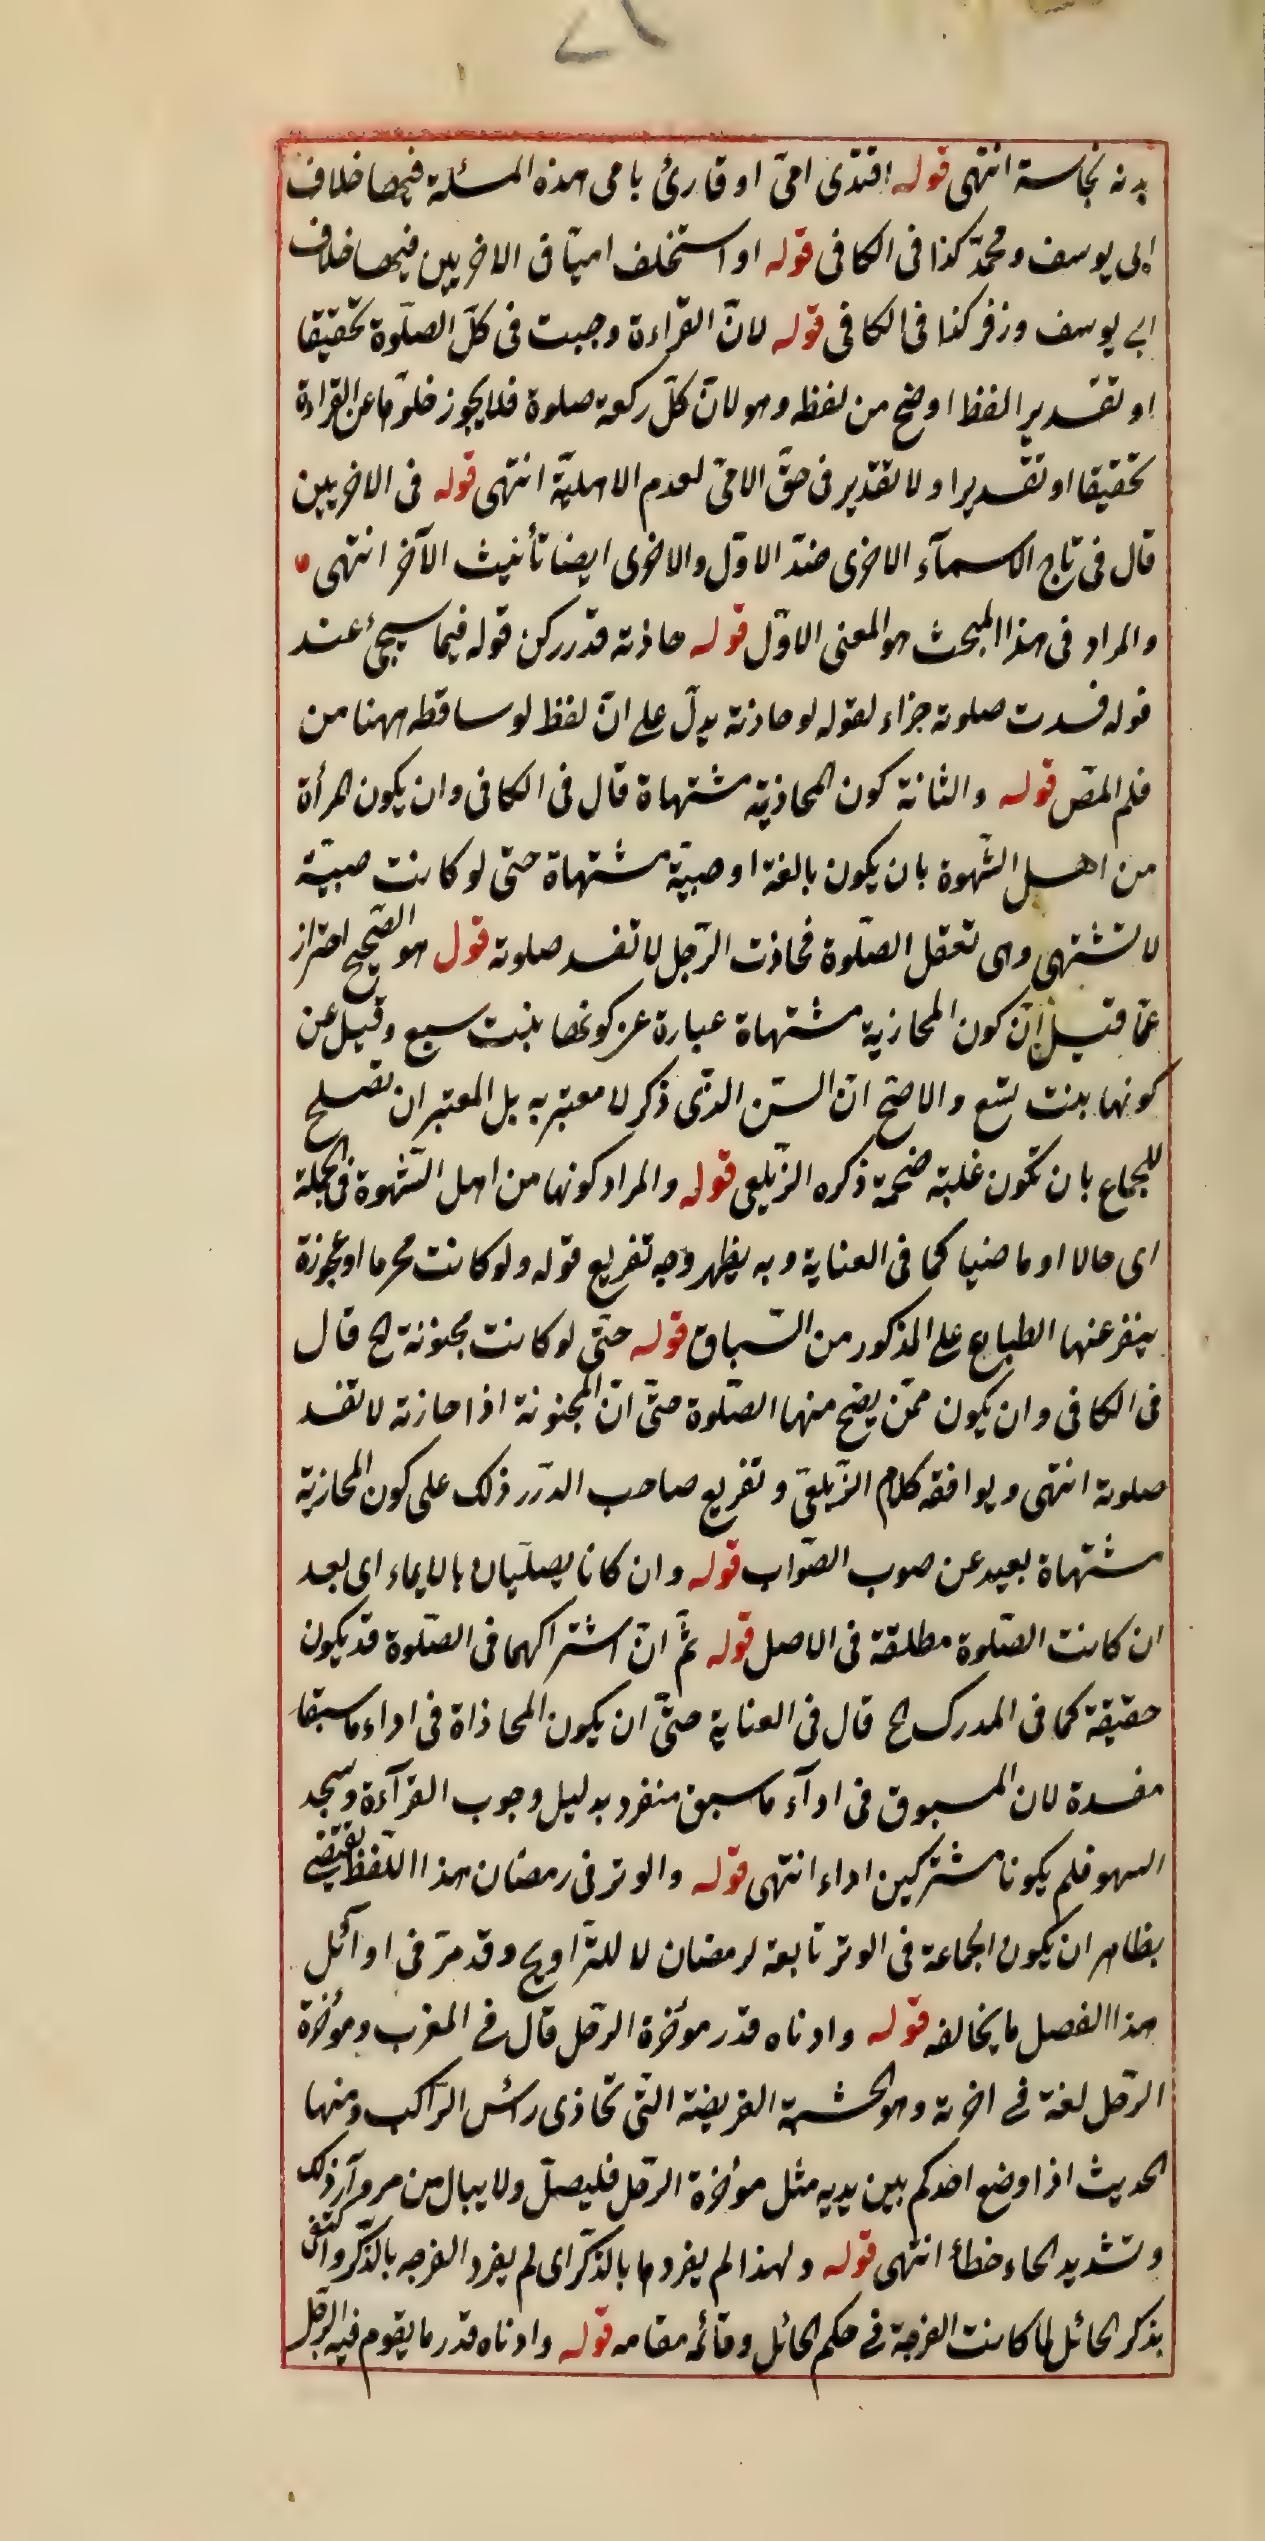 بدنه نجاسة انتهى قوله اقتدى امىّ او قارئ بامى هذه المسئلة فيها خلاف
ابى يوسف ومحمّد كذا فى الكافى قوله او استخلف اميّا فى الاخريين فيها خلاف
ابى يوسف وزفر كذا فى الكافى قوله لانّ القراءة وجبت فى كلّ الصلوة تحقيقا
او تقديرا لفظ اوضح من لفظه وهو لانّ كلّ ركعة صلوة فلا يجوز خلوّها عن القراءة
تحقيقا او تقديرا ولا تقدير فى حقّ الامىّ لعدم الاهليّة انتهى قوله فى الاخريين
قال فى تاج الاسمآء الاخرى ضدّ الاوّل والاخرى ايضا تأنيث الآخر انتهى
والمراد فى هذا المبحث هو المعنى الاوّل قوله حاذته قدر ركن قوله فيما سيجئ عند
قوله فسدت صلوته جزاء لقوله لو حاذته يدلّ على انّ لفظ لو ساقطه ههنا من
قلم المصّ قوله والثانة كون المحاذيّة مشتهاة قال فى الكافى وان يكون المرأة
من اهل الشّهوة بان يكون بالغة او صبيّة مشتهاة حتّى لو كانت صبيّة
لا تشتهى وهى تعقل الصّلوة فحاذت الرّجل لا تفسد صلوته قول هو الصّحيح احتراز
عمّا قيل انّ كون المحازية مشتهاة عبارة عن كونها بنت سبع وقيل عن
كونها بنت تسّع والاصّح انّ السّن الذّى ذكر لا معتبر به بل المعتبر ان تصلح
للجماع بان تكون غلبته ضخمة ذكره الزّيلعى قوله والمراد كونها من اهل الشّهوة فى الجملة
اى حالا او ماضيا كما فى العناية وبه يظهر وجه تفريع قوله ولو كانت محرما او عجوزة
ينفر عنها الطباع على المذكور من السّباق قوله حتّى لو كانت مجنونة الخ قال
فى الكافى وان يكون ممّن يصّح منها الصّلوة حتّى انّ المجنونة اذا حازته لا تفسد
صلوته انتهى ويوافقه كلام الزّيلعىّ وتفريع صاحب الدّرر ذلك على كون المحازية
مشتهاة بعيد عن صوب الصّواب قوله وان كانا يصلّيان بالايماء اى بعد
ان كانت الصّلوة مطلقة فى الاصل قوله ثمّ انّ اشتراكهما فى الصّلوة قد يكون
حقيقة كما فى المدرك الخ قال فى العناية حتّى ان يكون المحاذاة فى اداء ما سبقا
مفسدة لان المسبوق فى ادآء ما سبق منفرد بدليل وجوب القرآءة وسجد
السهو فلم يكونا مشتركين اداء انتهى قوله والوتر فى رمضان هذا اللّفظ يقتضى
بظاهر ان يكون الجماعة فى الوتر تابعة لرمضان لا للتّراويح وقد مرّ فى اوآئل
هذا الفصل ما يخالفه قوله وادناه قدر مؤخرة الرّحل قال فى المغرب ومؤخرة
الرّحل لغة فى اخرته وهو الخشبة العريضة التّى تحاذى رأس الرّاكب ومنها
الحديث اذا وضع احدكم بين يديه مثل مؤخرة الرّحل فليصلّ ولا يبال من مر ورآء ذلك
وتشديد الخاء خطأ انتهى قوله ولهذا لم يفردها بالذكر اى لم يفرد الفرجه بالذّكر واكتفى
بذكر الحائل لما كانت الفرجة فى حكم الحائل وقائمه مقامه قوله وادناه قدر ما يقوم فيه الرّجل